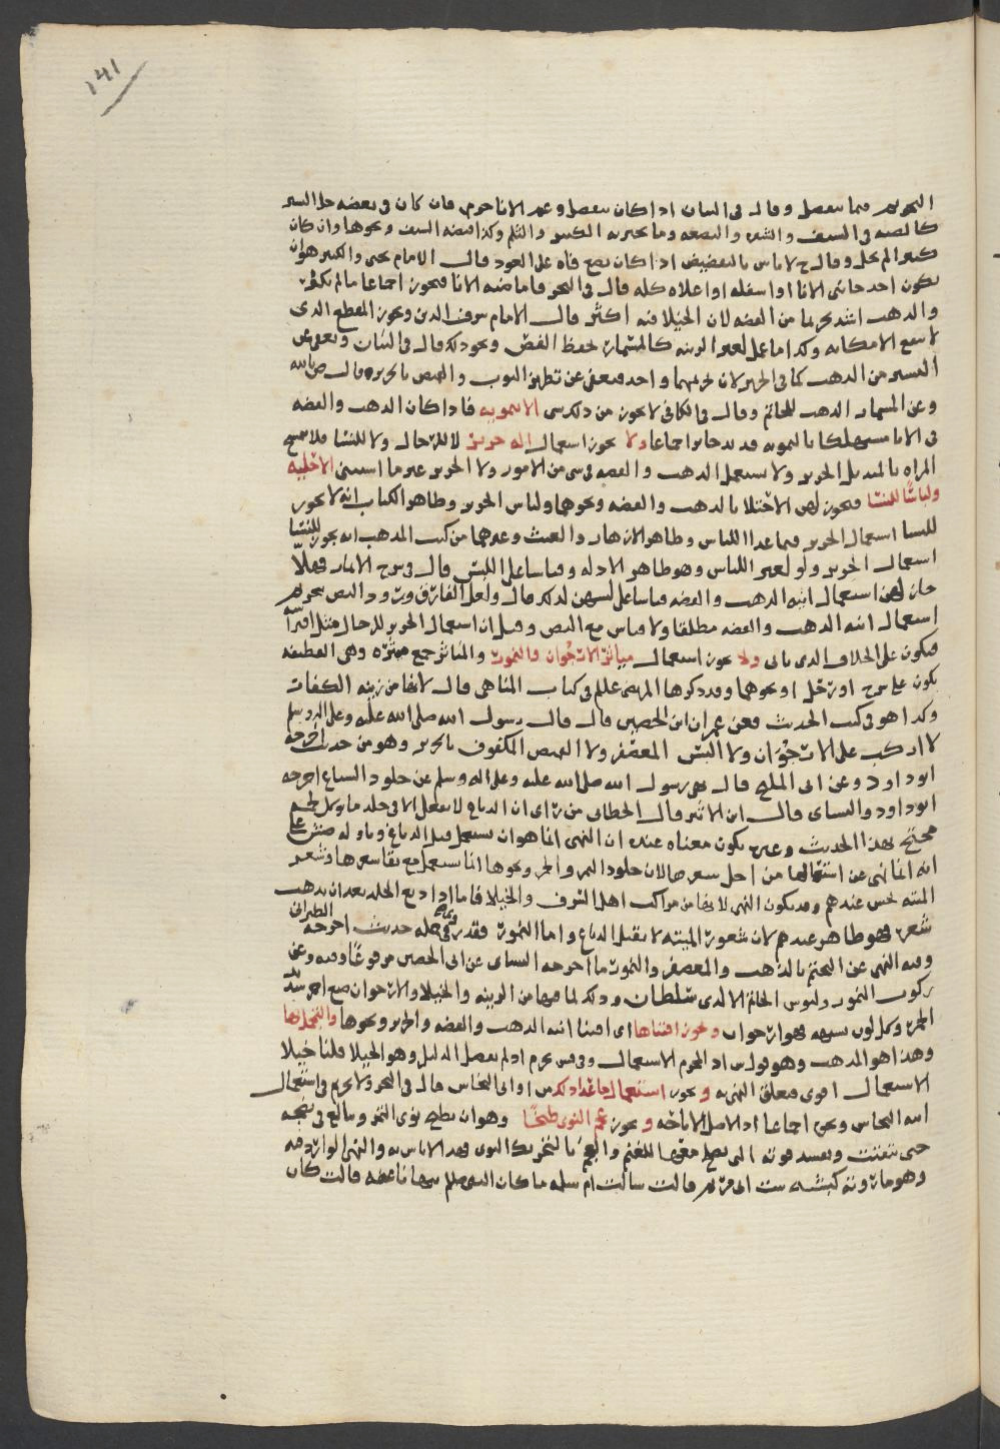 ١٤١
التحريم فيما يتصل وقال في البيان اذا كان يتصل وعم الانا حرم فان كان في بعضه حل اليسير
كالضبه في السيف والشفره والقصعه وما يجبر به الكسر والثلم وكذا قبضه السيف ونحوها وان كان
كثيرا لم يحل وقال ح لا باس بالتفضيض اذا كان يضع فاه على العود قال الامام يحيى والكثير هو ان
يكون احد جانبي الانا او اسفله او اعلاه كله قال في البحر فاما ضبه الانا فتجوز اجماعا ما لم تكثر
والذهب اشد تحريما من الفضه لان الخيلا فيه اكثر قال الامام شرف الدين ويجوز المقطع الذي
لا يسع الا مكانه وكذا ما عمل لغير الزينه كالمسمار لحفظ الفص ونحو ذلك قال في البيان ويعفى عن
اليسير من الذهب كما في الحرير لان تحريمهما واحد فيعفى عن تطريز الثوب والقميص بالحرير وقال ص بالله
وعن المسمار الذهب للخاتم وقال في الكافي لا يجوز من ذلك شي الا التمويه فاذا كان الذهب والفضه
في الانا مستهلكا بالتمويه فذلك جائز اجماعا ولا يجوز استعمال اله حرير لا للرجال ولا للنسا فلا تمسح
المراه بالمنديل الحرير ولا تستعمل الذهب والفضه في شي من الامور ولا الحرير غير ما استثنى الا حليه
ولباسا للنسا فيجوز لهن الاحتلا بالذهب والفضه ونحوهما ولباس الحرير وظاهر الكتاب انه لا يجوز
للنسا استعمال الحرير فيما عدا اللباس وظاهر الازهار والغيث وغيرهما من كتب المذهب انه يجوز للنسا
استعمال الحرير ولو لغير اللباس وهو ظاهر الادله وقياسا على اللبس قال في شرح الاثمار فهلا
جاز لهن استعمال انيه الذهب والفضه قياسا على لبسهن لذلك قال ولعل الفارق ورود النص بتحريم
استعمال انيه الذهب والفضه مطلقا ولا قياس مع النص وقيل ان استعمال الحرير للرجال مثل افتراشه
فيكون على الخلاف الذي ياتي ولا يجوز استعمال مياثر الارجوان والنمور والمياثر جمع ميثره وهي القطيفه
تكون على سرج او رحل او نحوهما وقد ذكرها المرتضى علم في كتاب المناهي قال لانها من زينه الكفار
وكذا هو في كتب الحديث فعن عمران ابن الحصين قال قال رسول الله صلى الله عليه وعلى اله وسلم
لا اركب على الارجوان ولا البس المعصفر ولا القميص المكفوف بالحرير وهو من حديث اخرجه
ابو داود وعن ابي المليح قال نهى رسول الله صلى الله عليه وعلى اله وسلم عن جلود السباع اخرجه
ابو داود والنساي قال ابن الاثير قال الخطابي من راى ان الدباغ لا يعمل الا في جلد ما يوكل لحمه
محتج بهذا الحديث وغيره يكون معناه عنده ان النهي انما هو ان يستعمل قبل الدباغ وتاوله على
انه انما نهى عن استعمالها من اجل شعرها لان جلود النمر والحمر ونحوها انما يستعمل مع بقا شعرها وشعر
الميته نجس عندهم وقد يكون النهي لانها من مراكب اهل الشرف والخيلا فاما اذا دبغ الجلد بعد ان يذهب
شعره فهو طاهر عندهم لان شعور الميته لا تقبل الدباغ واما النمور فقد جمله حديث اخرجه الطبراني
وفيه النهي عن التختم بالذهب والمعصفر والنمور ما اخرجه النساي عن ابي الحصين مرفوعا وفيه وعن
ركوب النمور ولبوس الخاتم الا لذي سلطان وذلك لما فيها من الزينه والخيلا والارجوان صبغ احمر شديد
الحمره وكل لون يشبهه فهو ارجوان ويجوز اقتناها اي اقتنا انيه الذهب والفضه والحرير ونحوها والتجمل بها
وهذا هو المذهب وهو قول ش اذ المحرم الاستعمال وفي قش يحرم اذ لم يفصل الدليل وهو الخيلا قلنا خيلا
الاستعمال اقوى فيتعلق النهي به ويجوز استعمال ما عدا ذلك من اواني النحاس قال في البحر ولا يحرم في استعمال
انيه النحاس ونحوه اجماعا اذ الاصل الاباحه ويجوز عجم النوى طبخا وهو ان يطبخ نوى التمر ويبالغ في نضجه
حتى يتفتت وتفسد قوته التي يصلح معها للغنم والعجم بالتحريك النوى فهذا لا باس به والنهي الوارد فيه
وهو ما روته كبشه بنت ابي مريم قالت سالت ام سلمه ما كان النبي صللم ينهانا عنه قالت كان